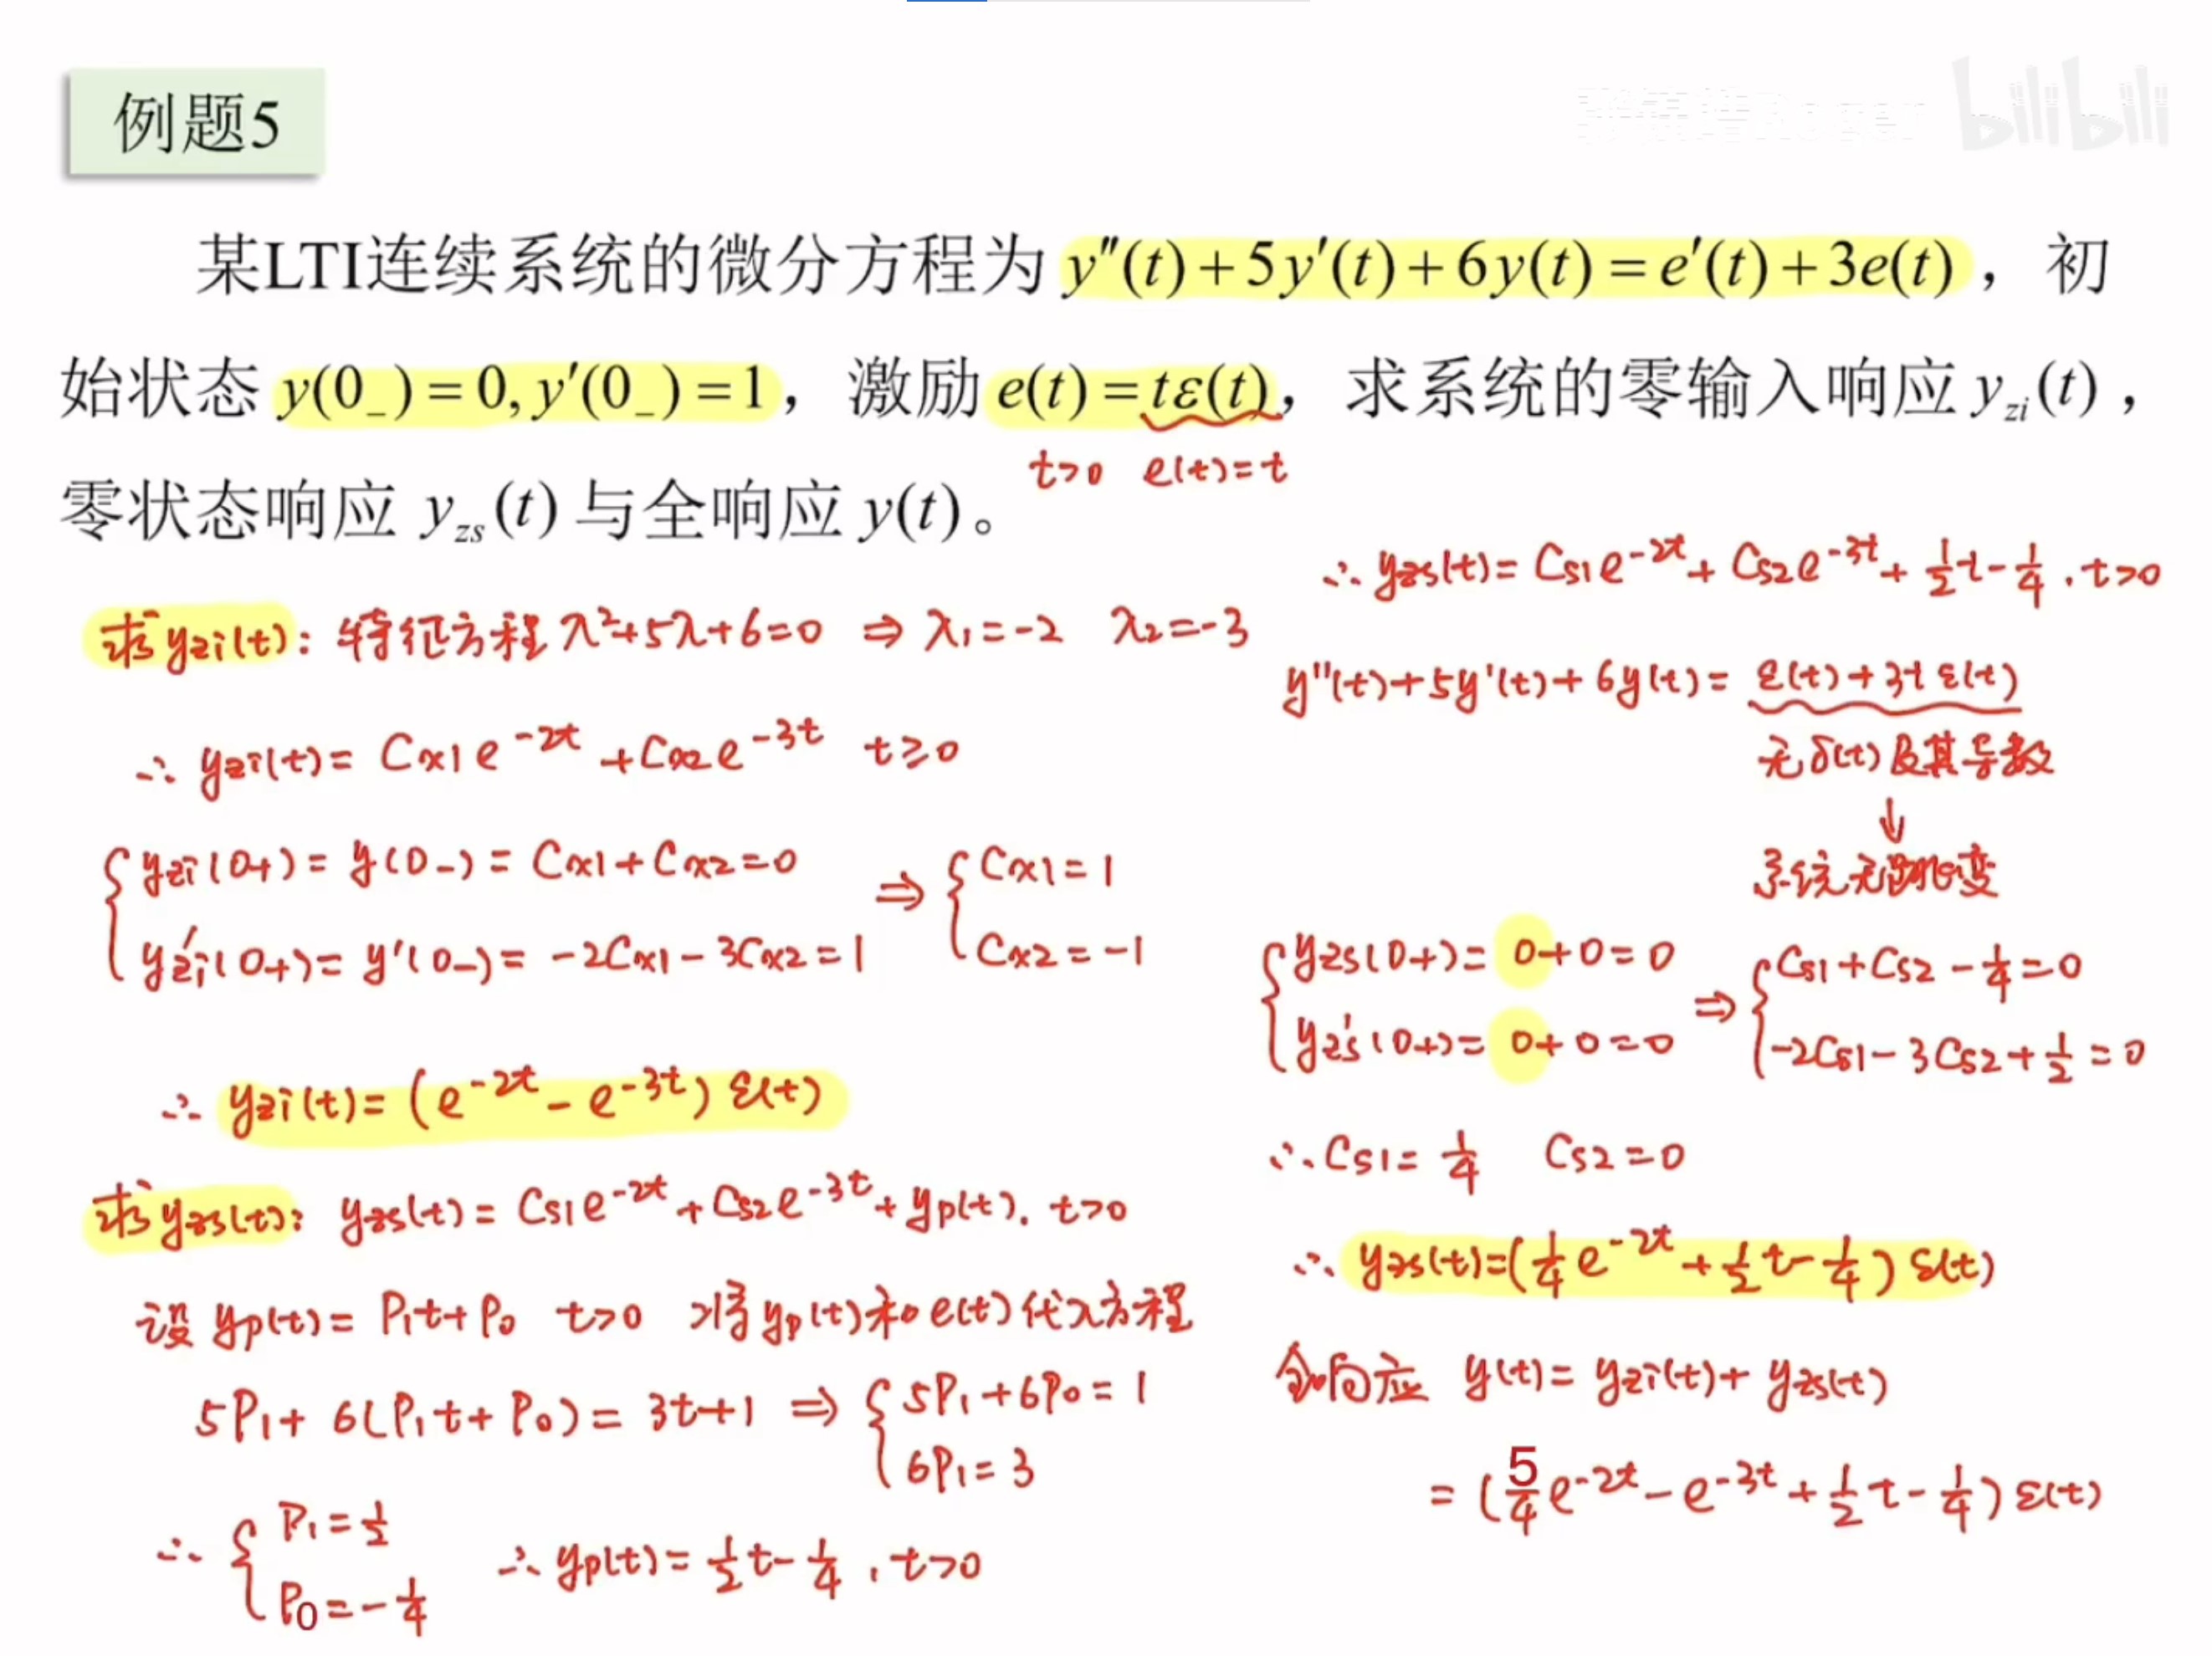 例题5
bilibili
某LTI连续系统的微分方程为 y″(t)+5y′(t)+6y(t)=e′(t)+3e(t)，初
始状态 y(0_)=0, y′(0_)=1，激励 e(t)=tε(t)，求系统的零输入响应 y_zi(t)，
t>0 e(t)=t
零状态响应 y_zs(t) 与全响应 y(t)。
求yzi(t)：特征方程 λ²+5λ+6=0 ⇒ λ₁=-2 λ₂=-3
∴ yzi(t)= Cx1 e^{-2t} + Cx2 e^{-3t} t≥0
{ yzi(0+)= y(0-)= Cx1+Cx2=0 ⇒ { Cx1=1
yzi′(0+)= y′(0-)= -2Cx1-3Cx2=1 Cx2=-1
∴ yzi(t)= (e^{-2t} - e^{-3t}) ε(t)
求yzs(t)：yzs(t)= Cs1 e^{-2t} + Cs2 e^{-3t} + yp(t). t>0
设 yp(t)= P₁t+P₀ t>0 将yp(t)和e(t)代入方程
5P₁+6(P₁t+P₀)= 3t+1 ⇒ { 5P₁+6P₀=1
6P₁=3
∴ { P₁=1/2
P₀=-1/4 ∴ yp(t)= 1/2 t - 1/4 , t>0
∴ yzs(t)= Cs1 e^{-2t} + Cs2 e^{-3t} + 1/2 t - 1/4 , t>0
y″(t)+5y′(t)+6y(t)= ε(t)+3t ε(t)
无δ(t)及其导数
↓
系统无跳变
{ yzs(0+)= 0+0=0 ⇒ { Cs1+Cs2-1/4=0
yzs′(0+)= 0+0=0 -2Cs1-3Cs2+1/2=0
∴ Cs1= 1/4 Cs2=0
∴ yzs(t)=(1/4 e^{-2t} + 1/2 t - 1/4) ε(t)
全响应 y(t)= yzi(t)+ yzs(t)
= (5/4 e^{-2t} - e^{-3t} + 1/2 t - 1/4) ε(t)